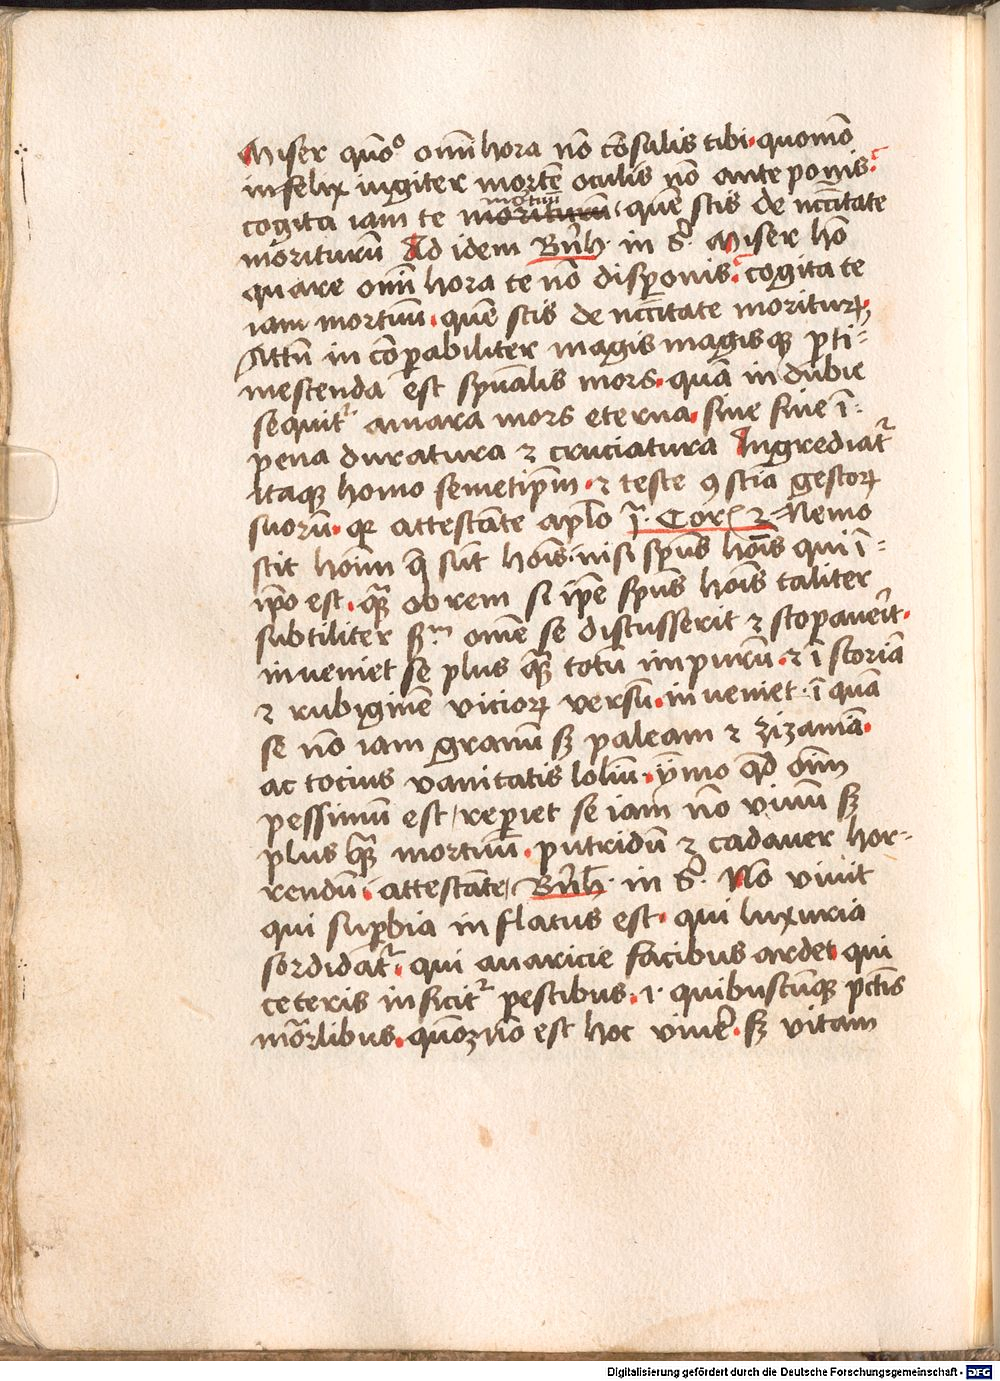 Miser quō omī hora nō cōsulis tibi · quomō
infelix iugiter mortē oculis nō ante ponis ·
mortuū
cogita iam te moriturū · quē scis de nccītate
moriturū Ad idem Bn̄h · in s̄ · Miser hō
quare omī hora te nō disponis · cogita te
iam mortuū · quē scis de nccītate moriturꝝ ·
Attn̄ in cōꝑabiliter magis magisqꝫ ꝑti-
mescenda est spūalis mors · quā in dubie
sequitr amara mors eterna · sine fine ī-
pena duratura ⁊ cruciatura Ingrediatr
itaqꝫ homo semetip̄m · ⁊ teste ꝯscīa gestoꝝ
suorū · qꝛ attestāte apl̄o j · Coꝝ 2 · Nemo
scit hoīm q̄ sūt hoīs · nisi sp̄us hoīs qui ī-
ip̄o est · qꝫ ob rem si ip̄e sp̄us hoīs taliter
subtiliter sm omē se discusserit ⁊ scopauerīt ·
inueniet se plus qꝫ totū impurū · ⁊ ī scoriā
⁊ rubiginē vicioꝝ versū · inueniet · ī quā
se nō iam granū sꝫ paleam ⁊ zizaniā ·
ac tocius vanitatis loliū · ȳmo qd̄ oīm
pessimū est / reꝑiet se iam nō viuū sꝫ
plus qꝫ mortuū · putridū ⁊ cadauer hor-
rendū · attestāte / Bn̄h · in s̄ · Nō viuit
qui suꝑbia inflatus est · qui luxuria
sordidatr · qui auaricie facibus ardet · qui
ceteris inficitr pestibus · i · quibuscūqꝫ pctīs
mōrlibus · quō nō est hoc viue̅ · sꝫ vitam
Digitalisierung gefördert durch die Deutsche Forschungsgemeinschaft - DFG